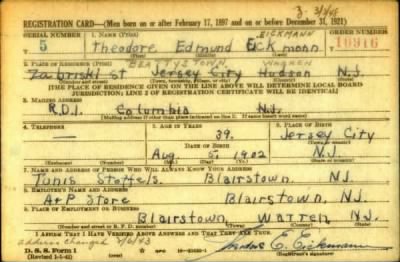 2- 3/3/48
REGISTRATION CARD—(Men born on or after February 17, 1897 and on or before December 31, 1921)
SERIAL NUMBER 1. NAME (Print) EICKMANN ORDER NUMBER
T 5 Theodore Edmund Eickmann 10916
(First) (Middle) (Last)
2. PLACE OF RESIDENCE (Print) BEATTYSTOWN. WARREN
Zabriski St Jersey City Hudson N.J.
(Number and street) (Town, township, village, or city) (County) (State)
[THE PLACE OF RESIDENCE GIVEN ON THE LINE ABOVE WILL DETERMINE LOCAL BOARD
JURISDICTION; LINE 2 OF REGISTRATION CERTIFICATE WILL BE IDENTICAL]
3. MAILING ADDRESS
R.D.1. Columbia N.J.
[Mailing address if other than place indicated on line 2. If same insert word same]
4. TELEPHONE 5. AGE IN YEARS 6. PLACE OF BIRTH
— 39. Jersey City
DATE OF BIRTH (Town or county)
Aug. 5 1902 N.J.
(Exchange) (Number) (Mo.) (Day) (Yr.) (State or country)
7. NAME AND ADDRESS OF PERSON WHO WILL ALWAYS KNOW YOUR ADDRESS
Tunis Stoffels. Blairstown, N.J.
8. EMPLOYER'S NAME AND ADDRESS
A+P Store Blairstown, N.J.
9. PLACE OF EMPLOYMENT OR BUSINESS
Blairstown, Warren, N.J.
(Number and street or R. F. D. number) (Town) (County) (State)
I AFFIRM THAT I HAVE VERIFIED ABOVE ANSWERS AND THAT THEY ARE TRUE.
address changed 7/6/43
D. S. S. Form 1 Theodore E. Eickmann
(Revised 1-5-42) (over) (Registrant's signature)